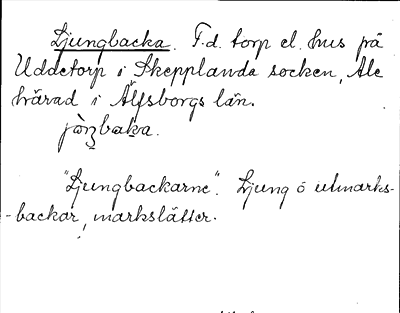 Ljungbacka. F.d. torp el. hus på
Uddetorp i Skepplanda socken, Ale
härad i Älfsborgs län.
"Ljungbackarne". Ljung o utmarks-
-backar, markslätter.